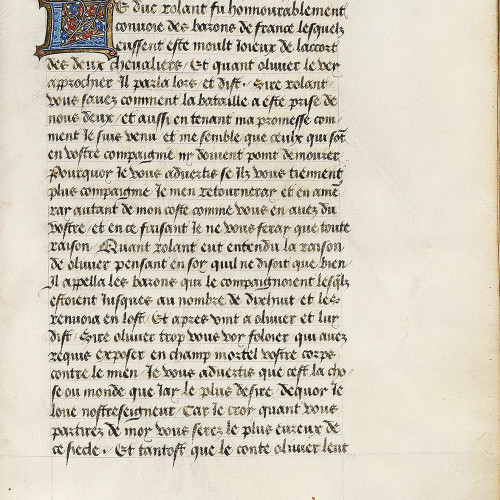 Le duc rolant fu honnourablement
convoie des barons de france lesquelz
eussent este moult Ioieux de laccort
des deux chevaliers / Et quant olivier le vey
approchier Il parla lors et dist / Sire rolant
vous savez comment la bataille a este prise de
nous deux / et aussi en tenant ma promesse com-
ment Ie suis venu et me semble que ceulx qui sont
en vostre compaignie ny doivent point demourer
Pourquoy Ie vous advertis se Ilz vous tiennent
plus compaignie Ie men retourneray et en ame-
ray autant de mon coste comme vous en avez du
vostre / et en ce faisant Ie ne vous feray que toute
raison / Quant rolant eut entendu la raison
de olivier pensant en soy quil ne disoit que bien /
Il appella les barons qui le compaignoient lesqlz
estoient Iusques au nombre de dixhuit et les
renvoia en lost / Et apres vint a olivier et luy
dist / Sire olivier trop vous voy foloier qui avez
requis exposer en champ mortel vostre corps
contre le mien / Ie vous advertis que cest la cho-
se ou monde que Iay le plus desire / dequoy Ie
loue nostreseigneur / Car Ie croy quant vous
partirez de moy vous serez le plus eureux de
ce siecle / Et tantost que le conte olivier leut